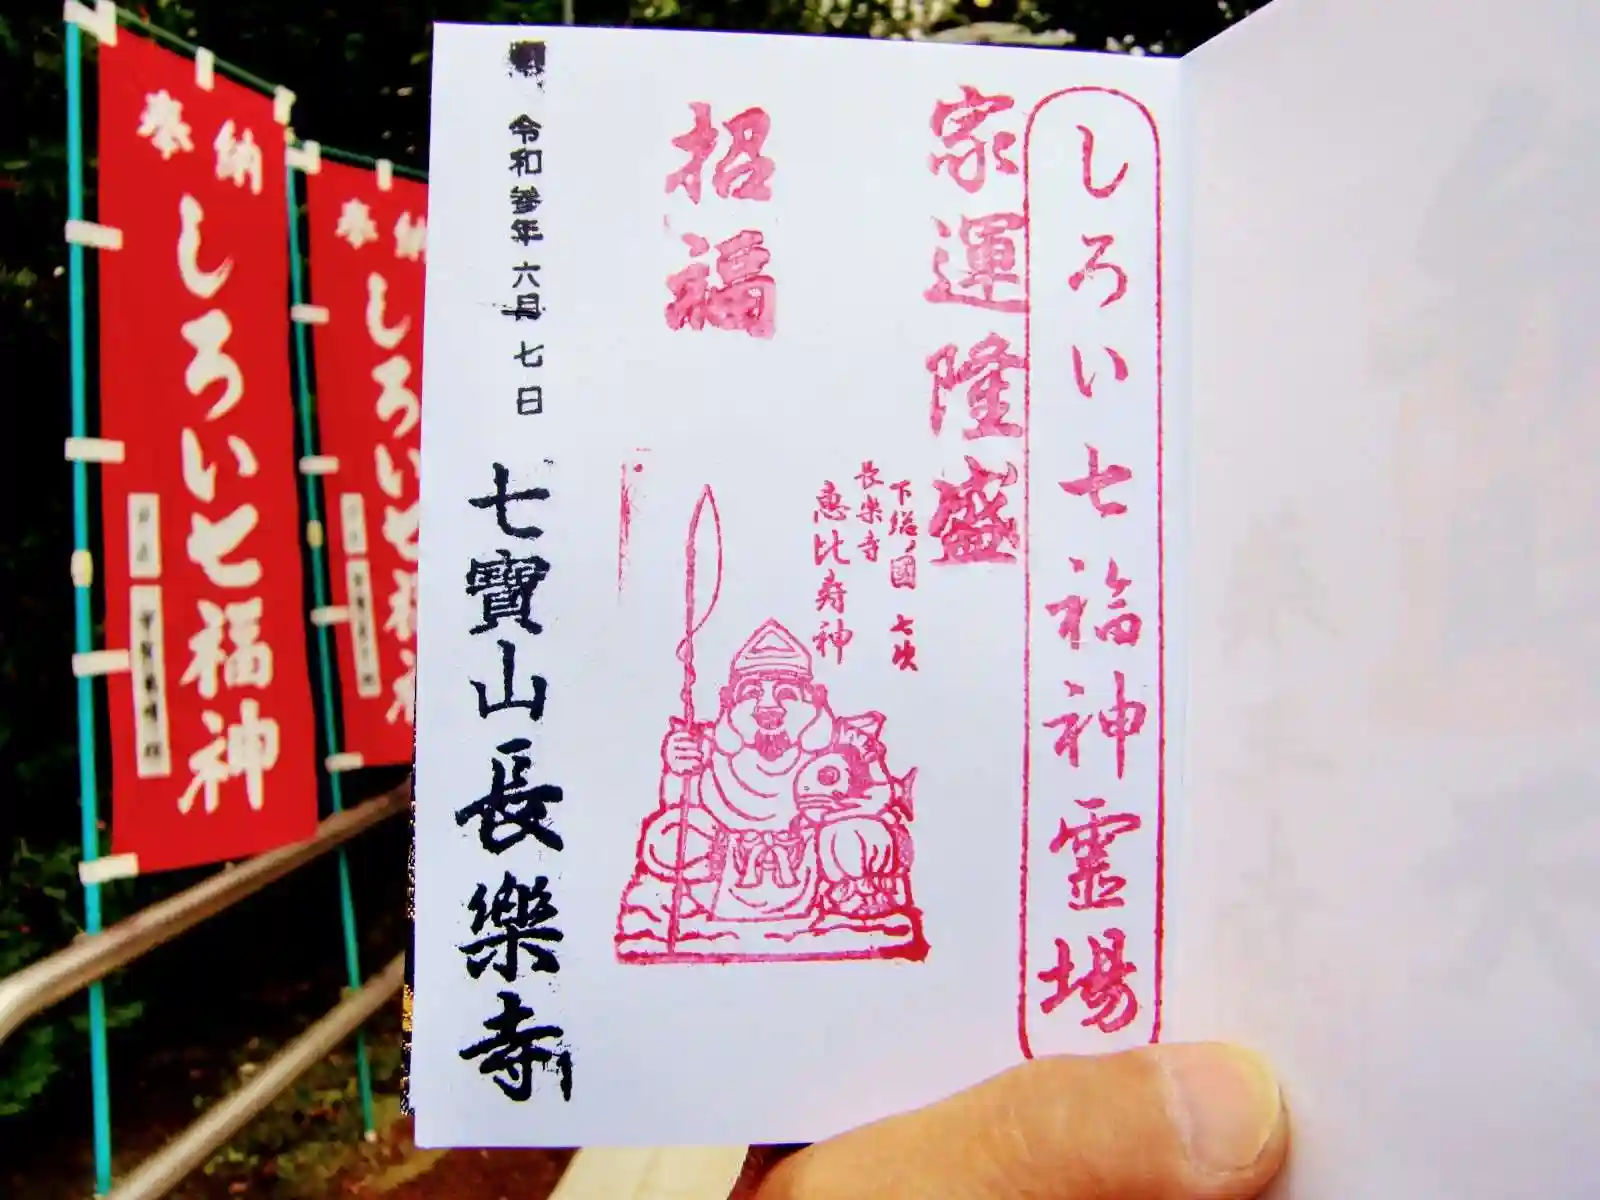 しろい七福神霊場
家運隆盛
下総ノ國 七次
長楽寺
恵比寿神
招福
令和参年 六月 七日
七寶山長樂寺
奉納
しろい七福神
奉納
しろい七福神